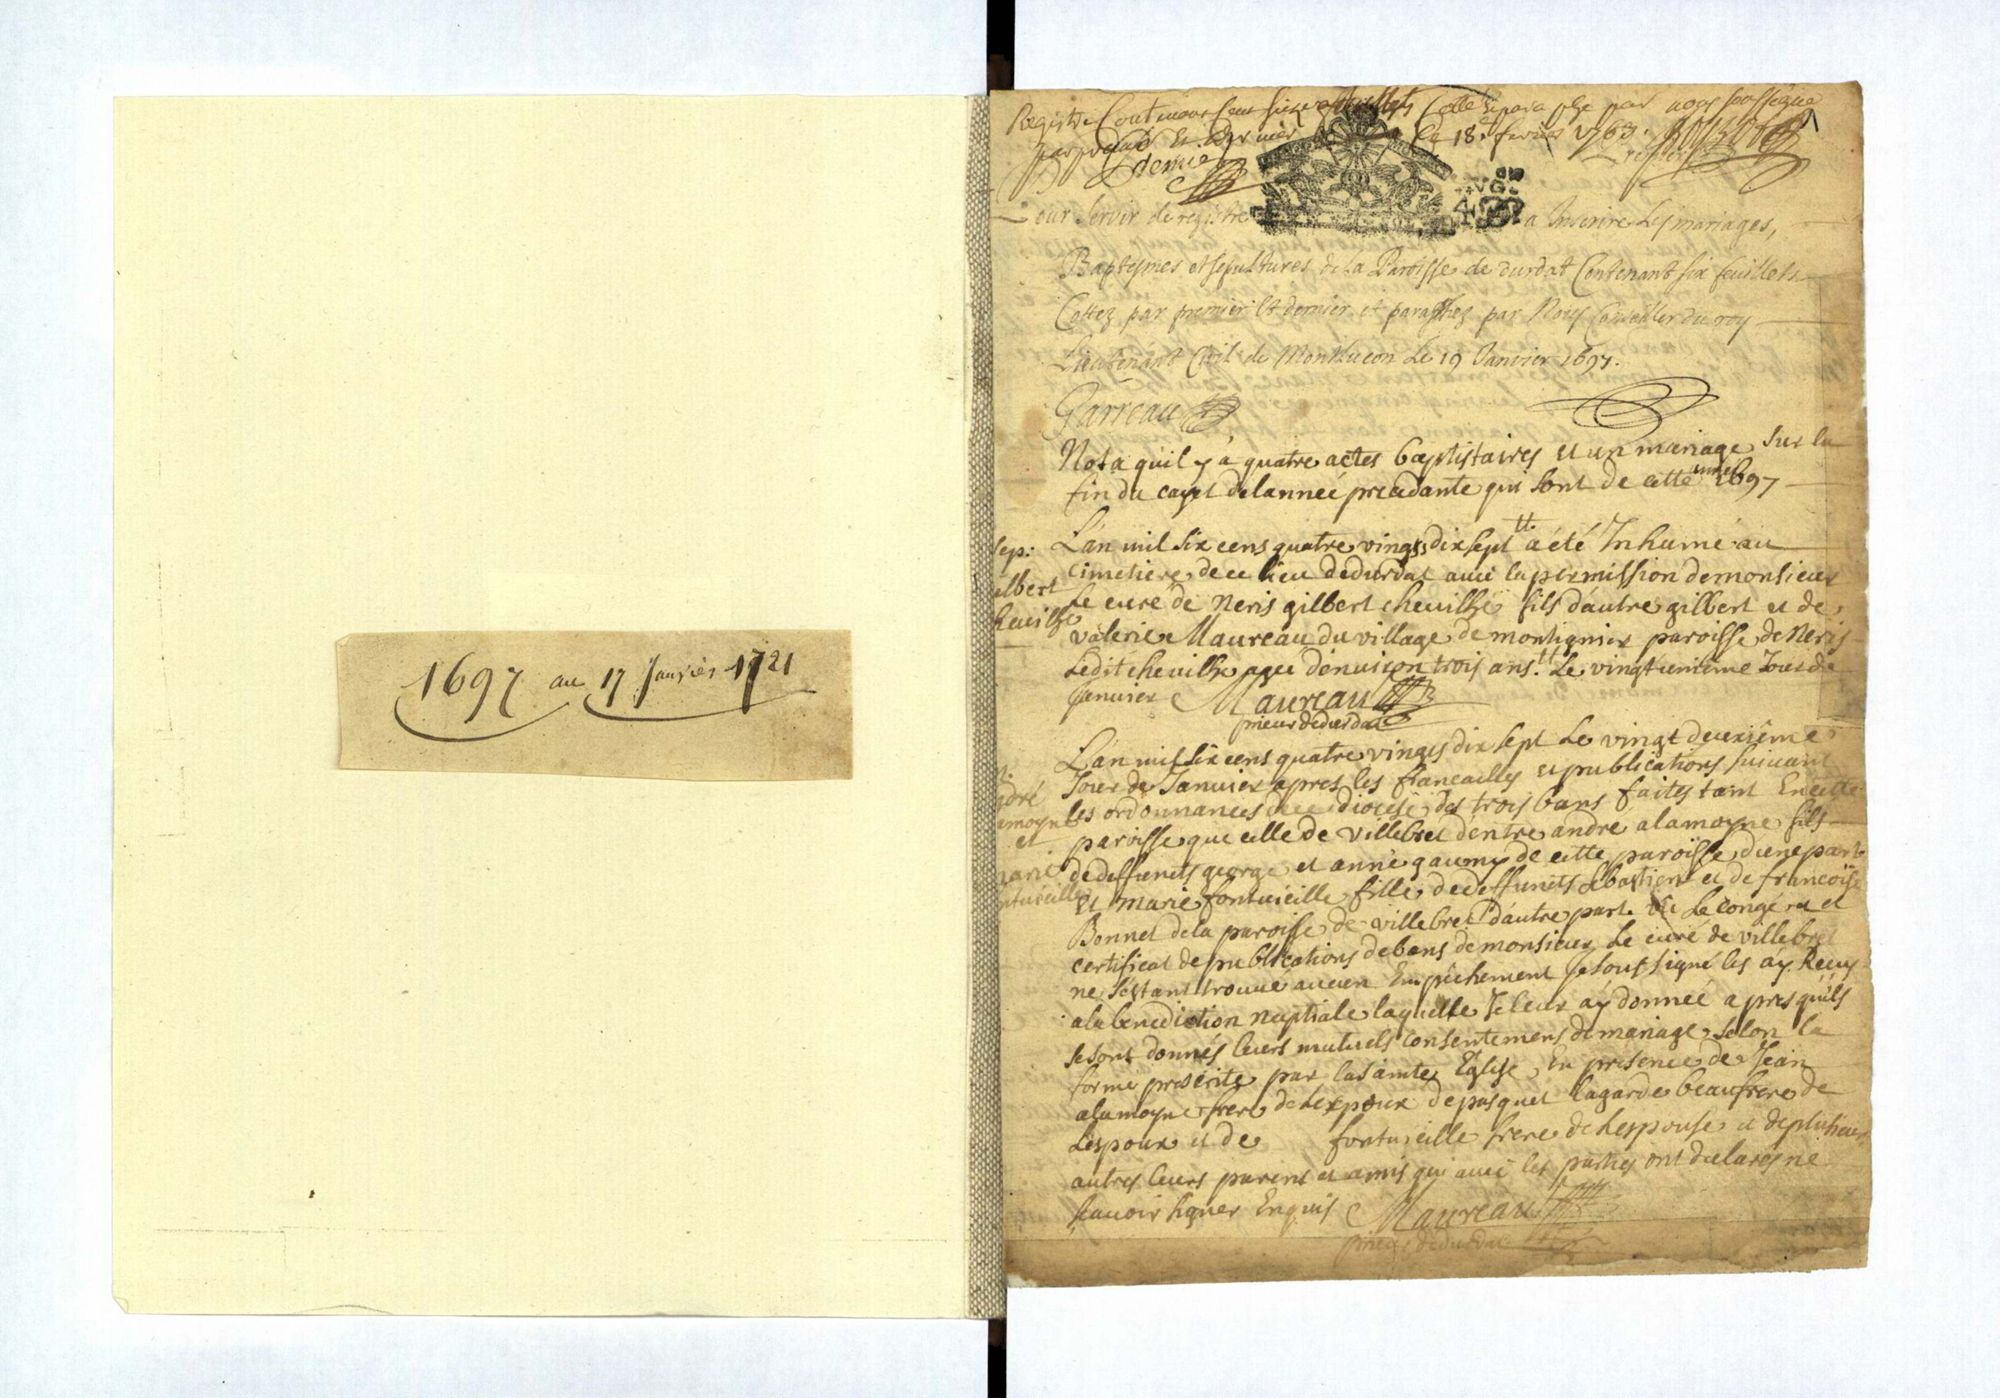 1697 au 17 Janvier 1721
Registre Contenant Cent Seize feuillets Cotté et paraphé par nous soussigné
par premier Et Dernier Ce 18e fevrier 1763.
Pour Servir de registre a Inscrire Les mariages,
Baptesmes et sepultures de la Paroisse de durdat Contenant six feuillets
Cottez par premier Et dernier et paraphez par Nous Conseiller du roy
Lieutenant Civil de Montlucon Le 19 Janvier 1697.
Garreau
Nota quil y a quatre actes baptistaires et un mariage Sur la
fin du cayet de lanneé precedante qui sont de cette année 1697
Sep:
gilbert
cheuilhe
L'an mil six cens quatre vings dix sept tt a été Inhumé au
cimetiere de ce lieu de durdat auec la permission de monsieur
Le curé de Neris gilbert cheuilhe fils d'autre gilbert et de
valerie Maureau du village de montignier paroisse de Neris
Ledit cheuilhe agé d'enuiron trois ans. tt Le vingt unieme Jour de
Januier Maureau
prieur de durdat
L'an mil six cens quatre vings dix sept Le vingt deuxiême
Jour de Januier apres les fiancailles et publications suiuant
les ordonnances du diocêse des trois bans faites tant En cette
paroisse que celle de villebret d'entre andré alamoyne fils
de deffunts george et anne gaumy de cette paroisse d'une part
et marie fontuieille fille de deffunts sebastien et de francoise
Bonnet de la paroisse de villebret d'autre part. Vu Le congé et
certificat de publications de bans de monsieur Le curé de villebret
ne s'estant trouué aucun Empêchement Je sousigné les ay Receus
a la benediction nuptiale laquelle Je leur ay donneé apres quils
se sont donnés leurs mutuels consentemens de mariage selon la
forme prescrite par la sainte Eglise, En presence de Jean
alamoyne frere de L'expoux de pasquet lagarde beaufrere de
Lespoux et de fontuieille frere de Lespouse et de plusieurs
autres leurs parens et amis qui auec les parties ont declaré ne
scauoir signer Enquis Maureau
prieur de durdat
andré
alamoyne
et
marie
fontuieille